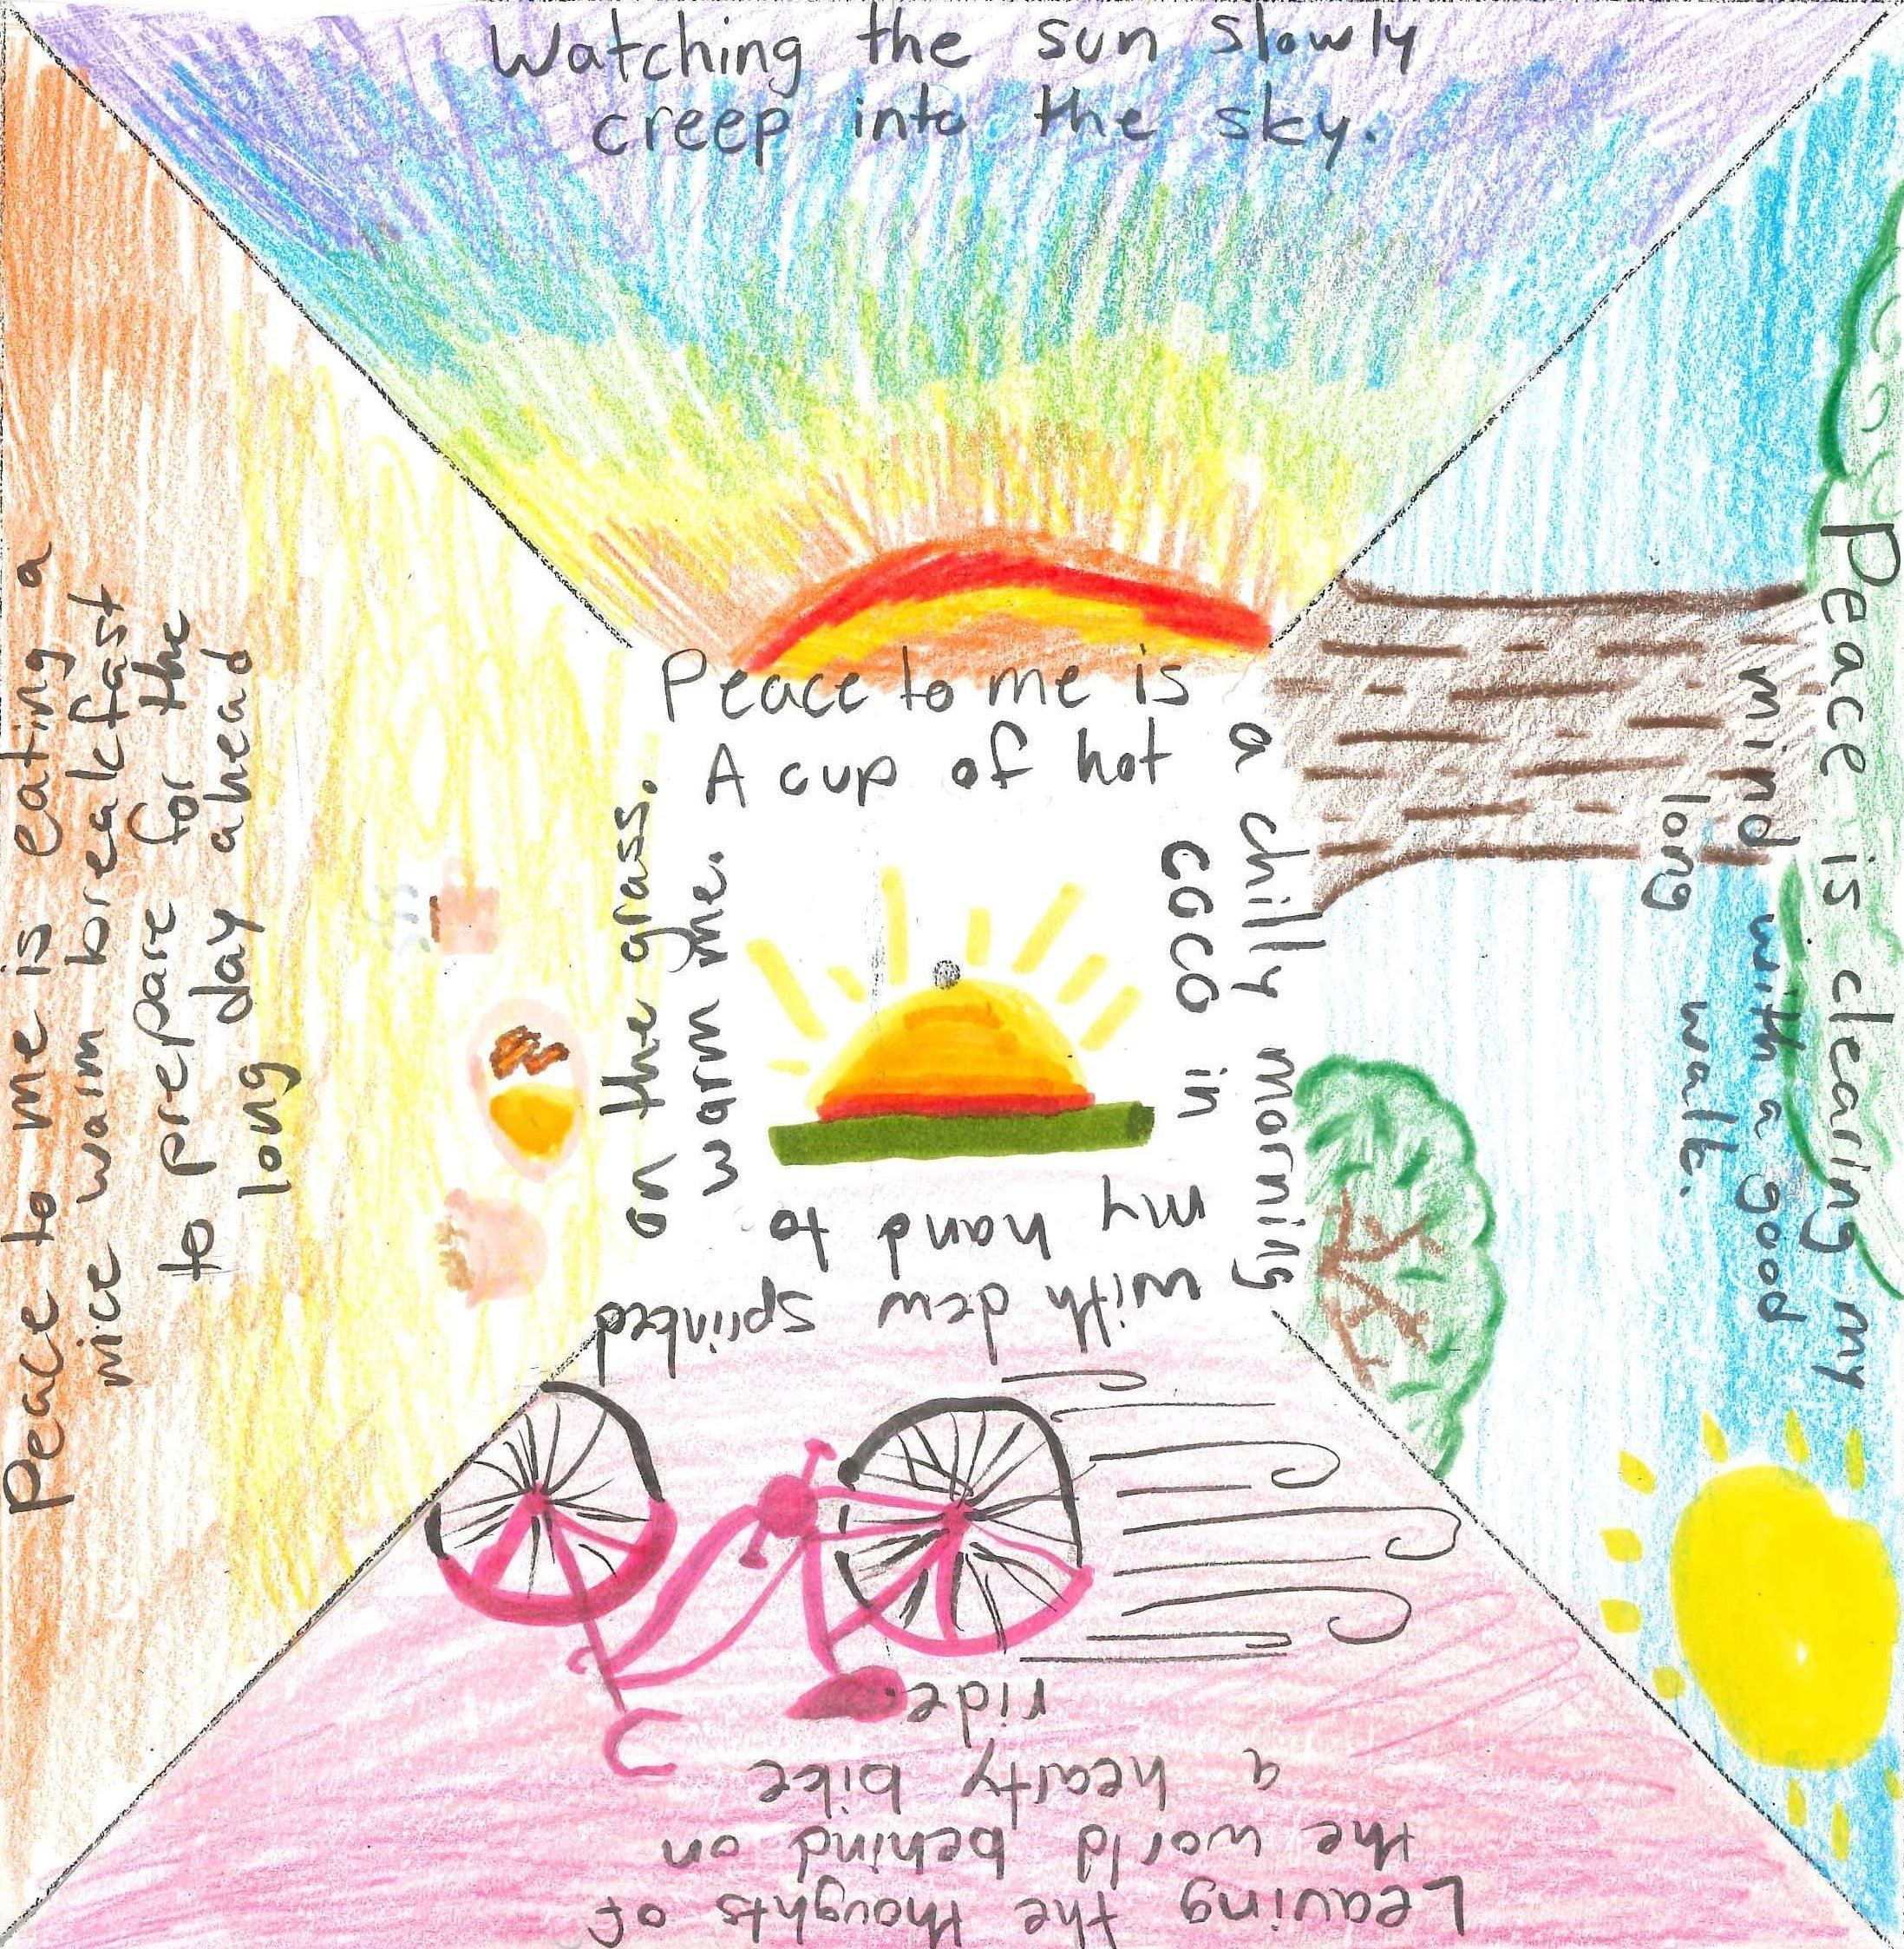 Watching the sun slowly
creep into the sky.
Peace is clearing my
mind with a good
long walk.
Leaving the thoughts of
the world behind on
a hearty bike
ride.
Peace to me is eating a
nice warm breakfast
to prepare for the
long day ahead
Peace to me is
a chilly morning
with dew sprinked
on the grass.
A cup of hot
coco in
my hand to
warm me.